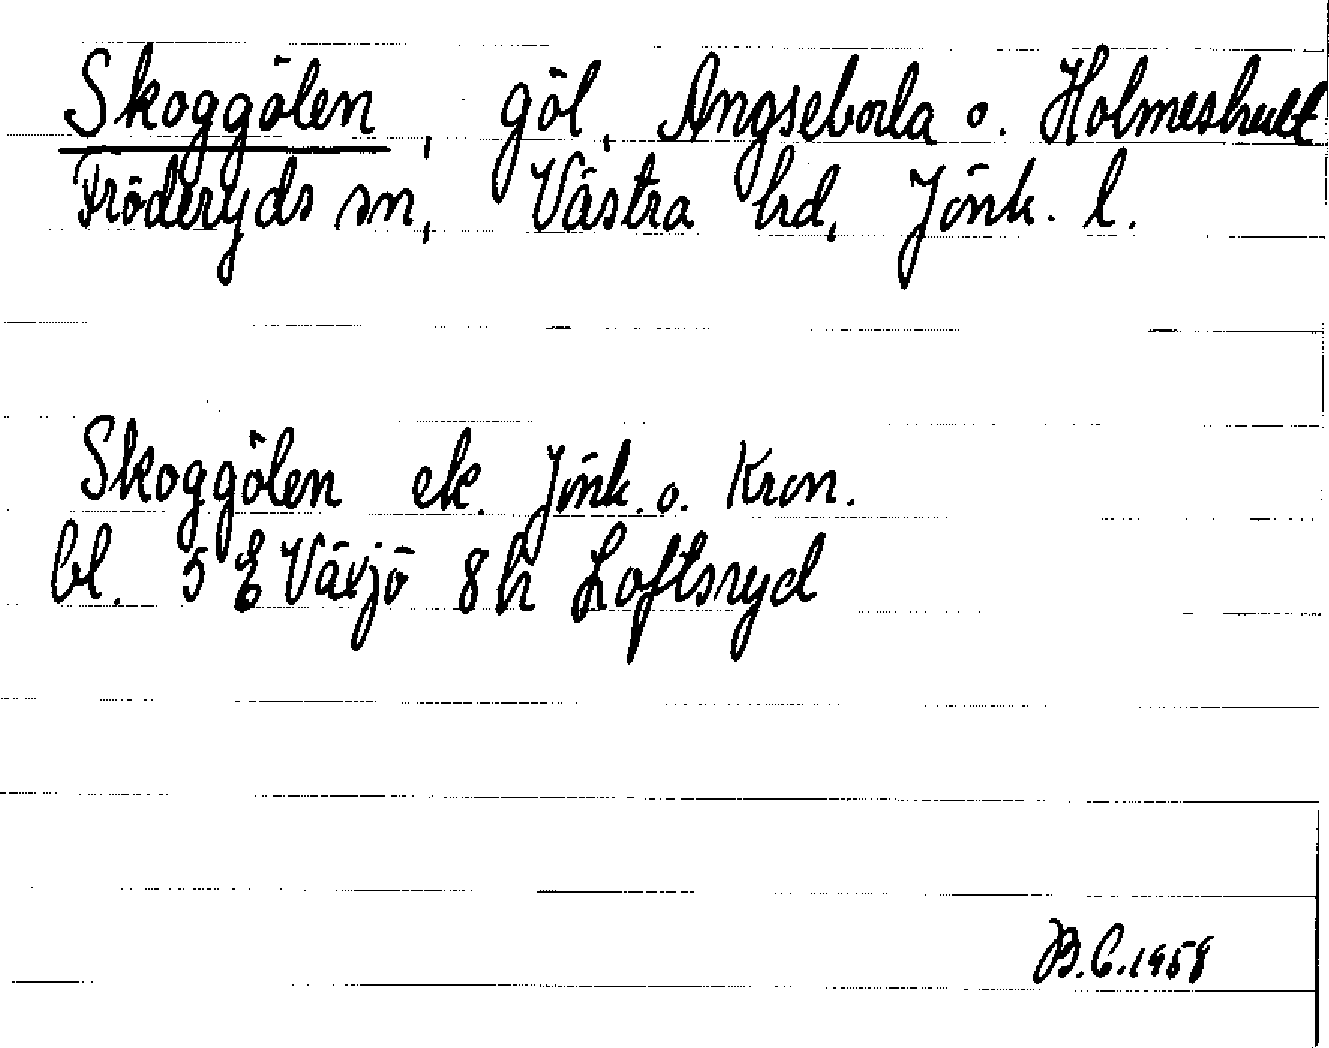 Skoggölen, göl, Angseboda o. Holmeshult
Fröderyds sn, Västra hd, Jönk. l.
Skoggölen ek. Jönk. o. Kron.
bl. 5 E Växjö 8 h Loftsryd
B.C. 1958